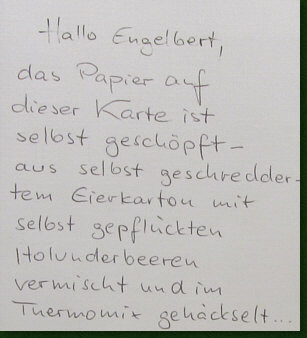 Hallo Engelbert,
das Papier auf
dieser Karte ist
selbst geschöpft -
aus selbst geschredder-
tem Eierkarton mit
selbst gepflückten
Holunderbeeren
vermischt und im
Thermomix gehäckselt...